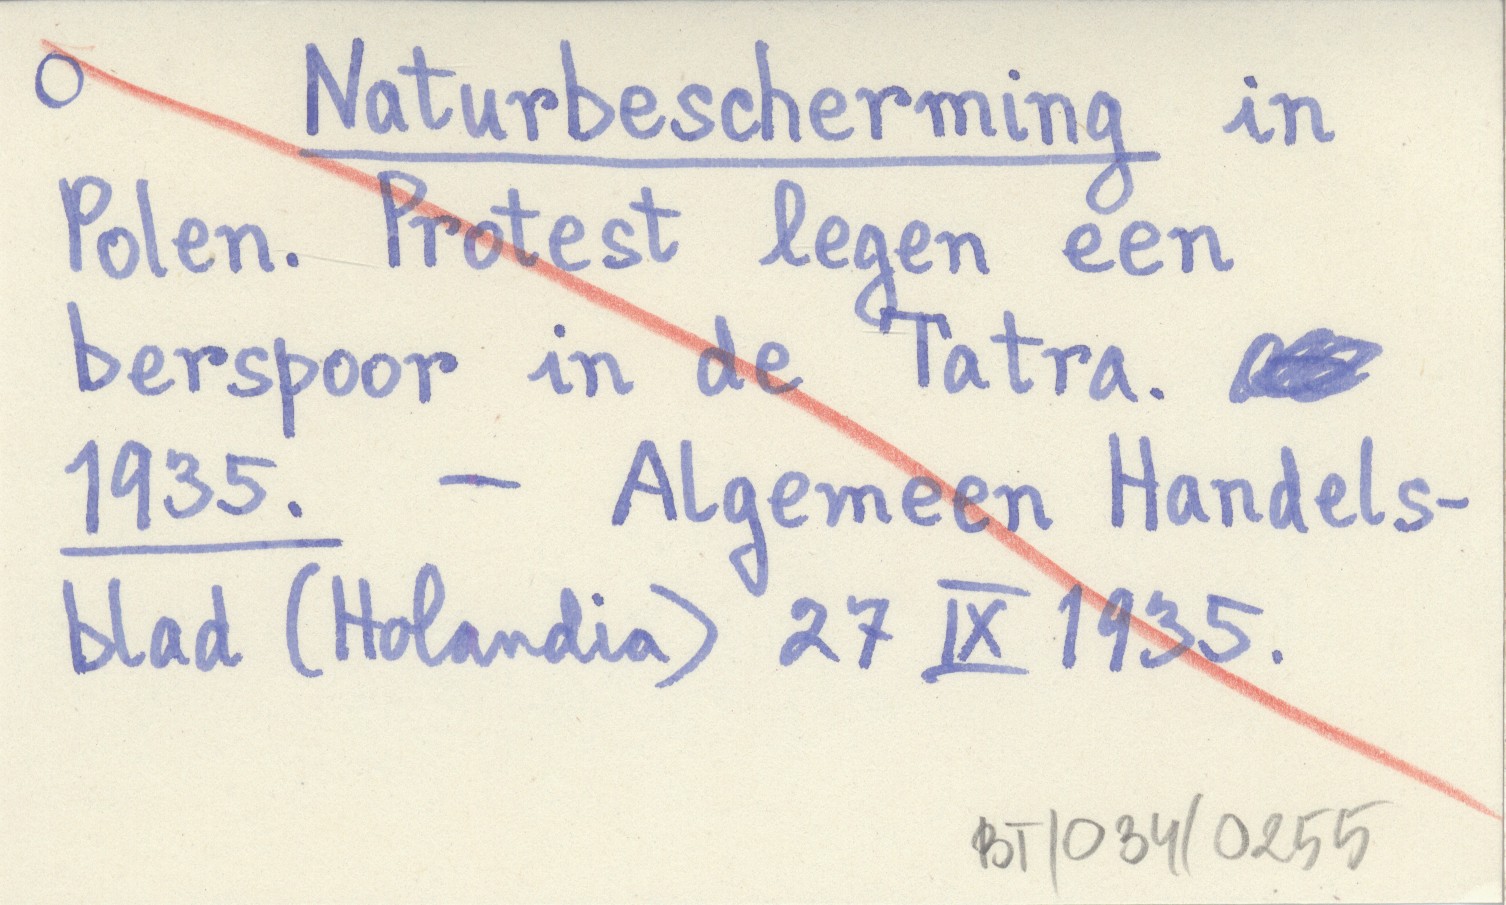 O Naturbescherming in
Polen. Protest legen een
berspoor in de Tatra.
1935. — Algemeen Handels-
blad (Holandia) 27 IX 1935.
BT/034/0255